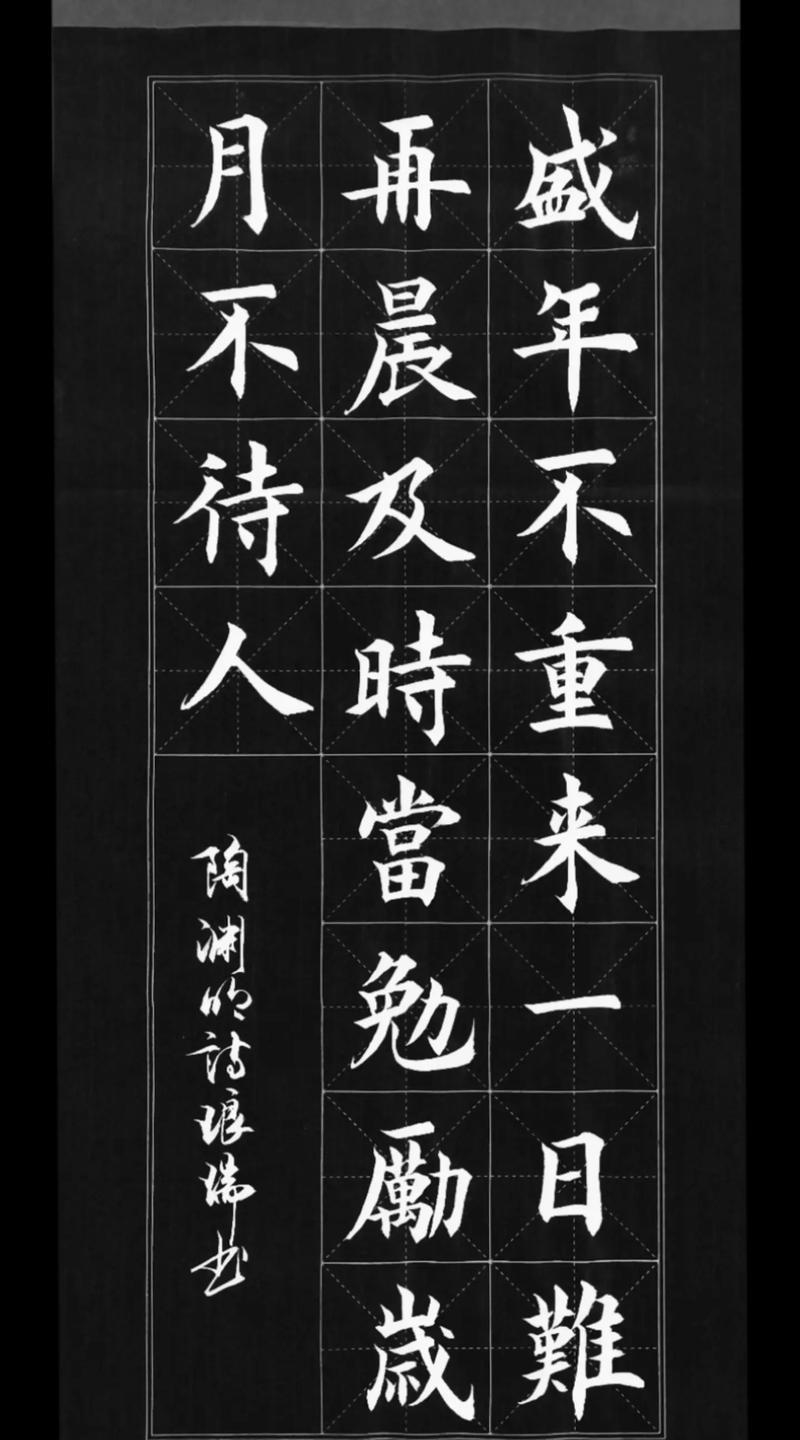 盛年不重来一日難
再晨及時當勉勵歲
月不待人
陶渊明詩琅瑞书